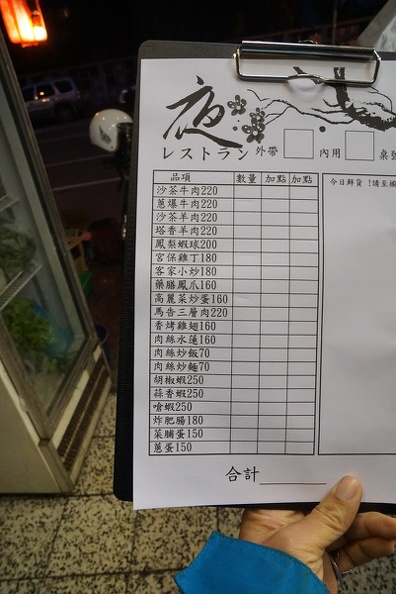 夜
レストラン 外帶 內用 桌號
品項 數量 加點 加點
今日鮮貨！請至櫥
沙茶牛肉220
蔥爆牛肉220
沙茶羊肉220
塔香羊肉220
鳳梨蝦球200
宮保雞丁180
客家小炒180
藥膳鳳爪160
高麗菜炒蛋160
馬告三層肉220
香烤雞翅160
肉絲水蓮160
肉絲炒飯70
肉絲炒麵70
胡椒蝦250
蒜香蝦250
嗆蝦250
炸肥腸180
菜脯蛋150
蔥蛋150
合計